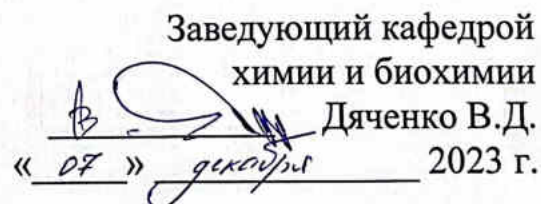 Заведующий кафедрой
химии и биохимии
Дяченко В.Д.
« 07 » декабря 2023 г.